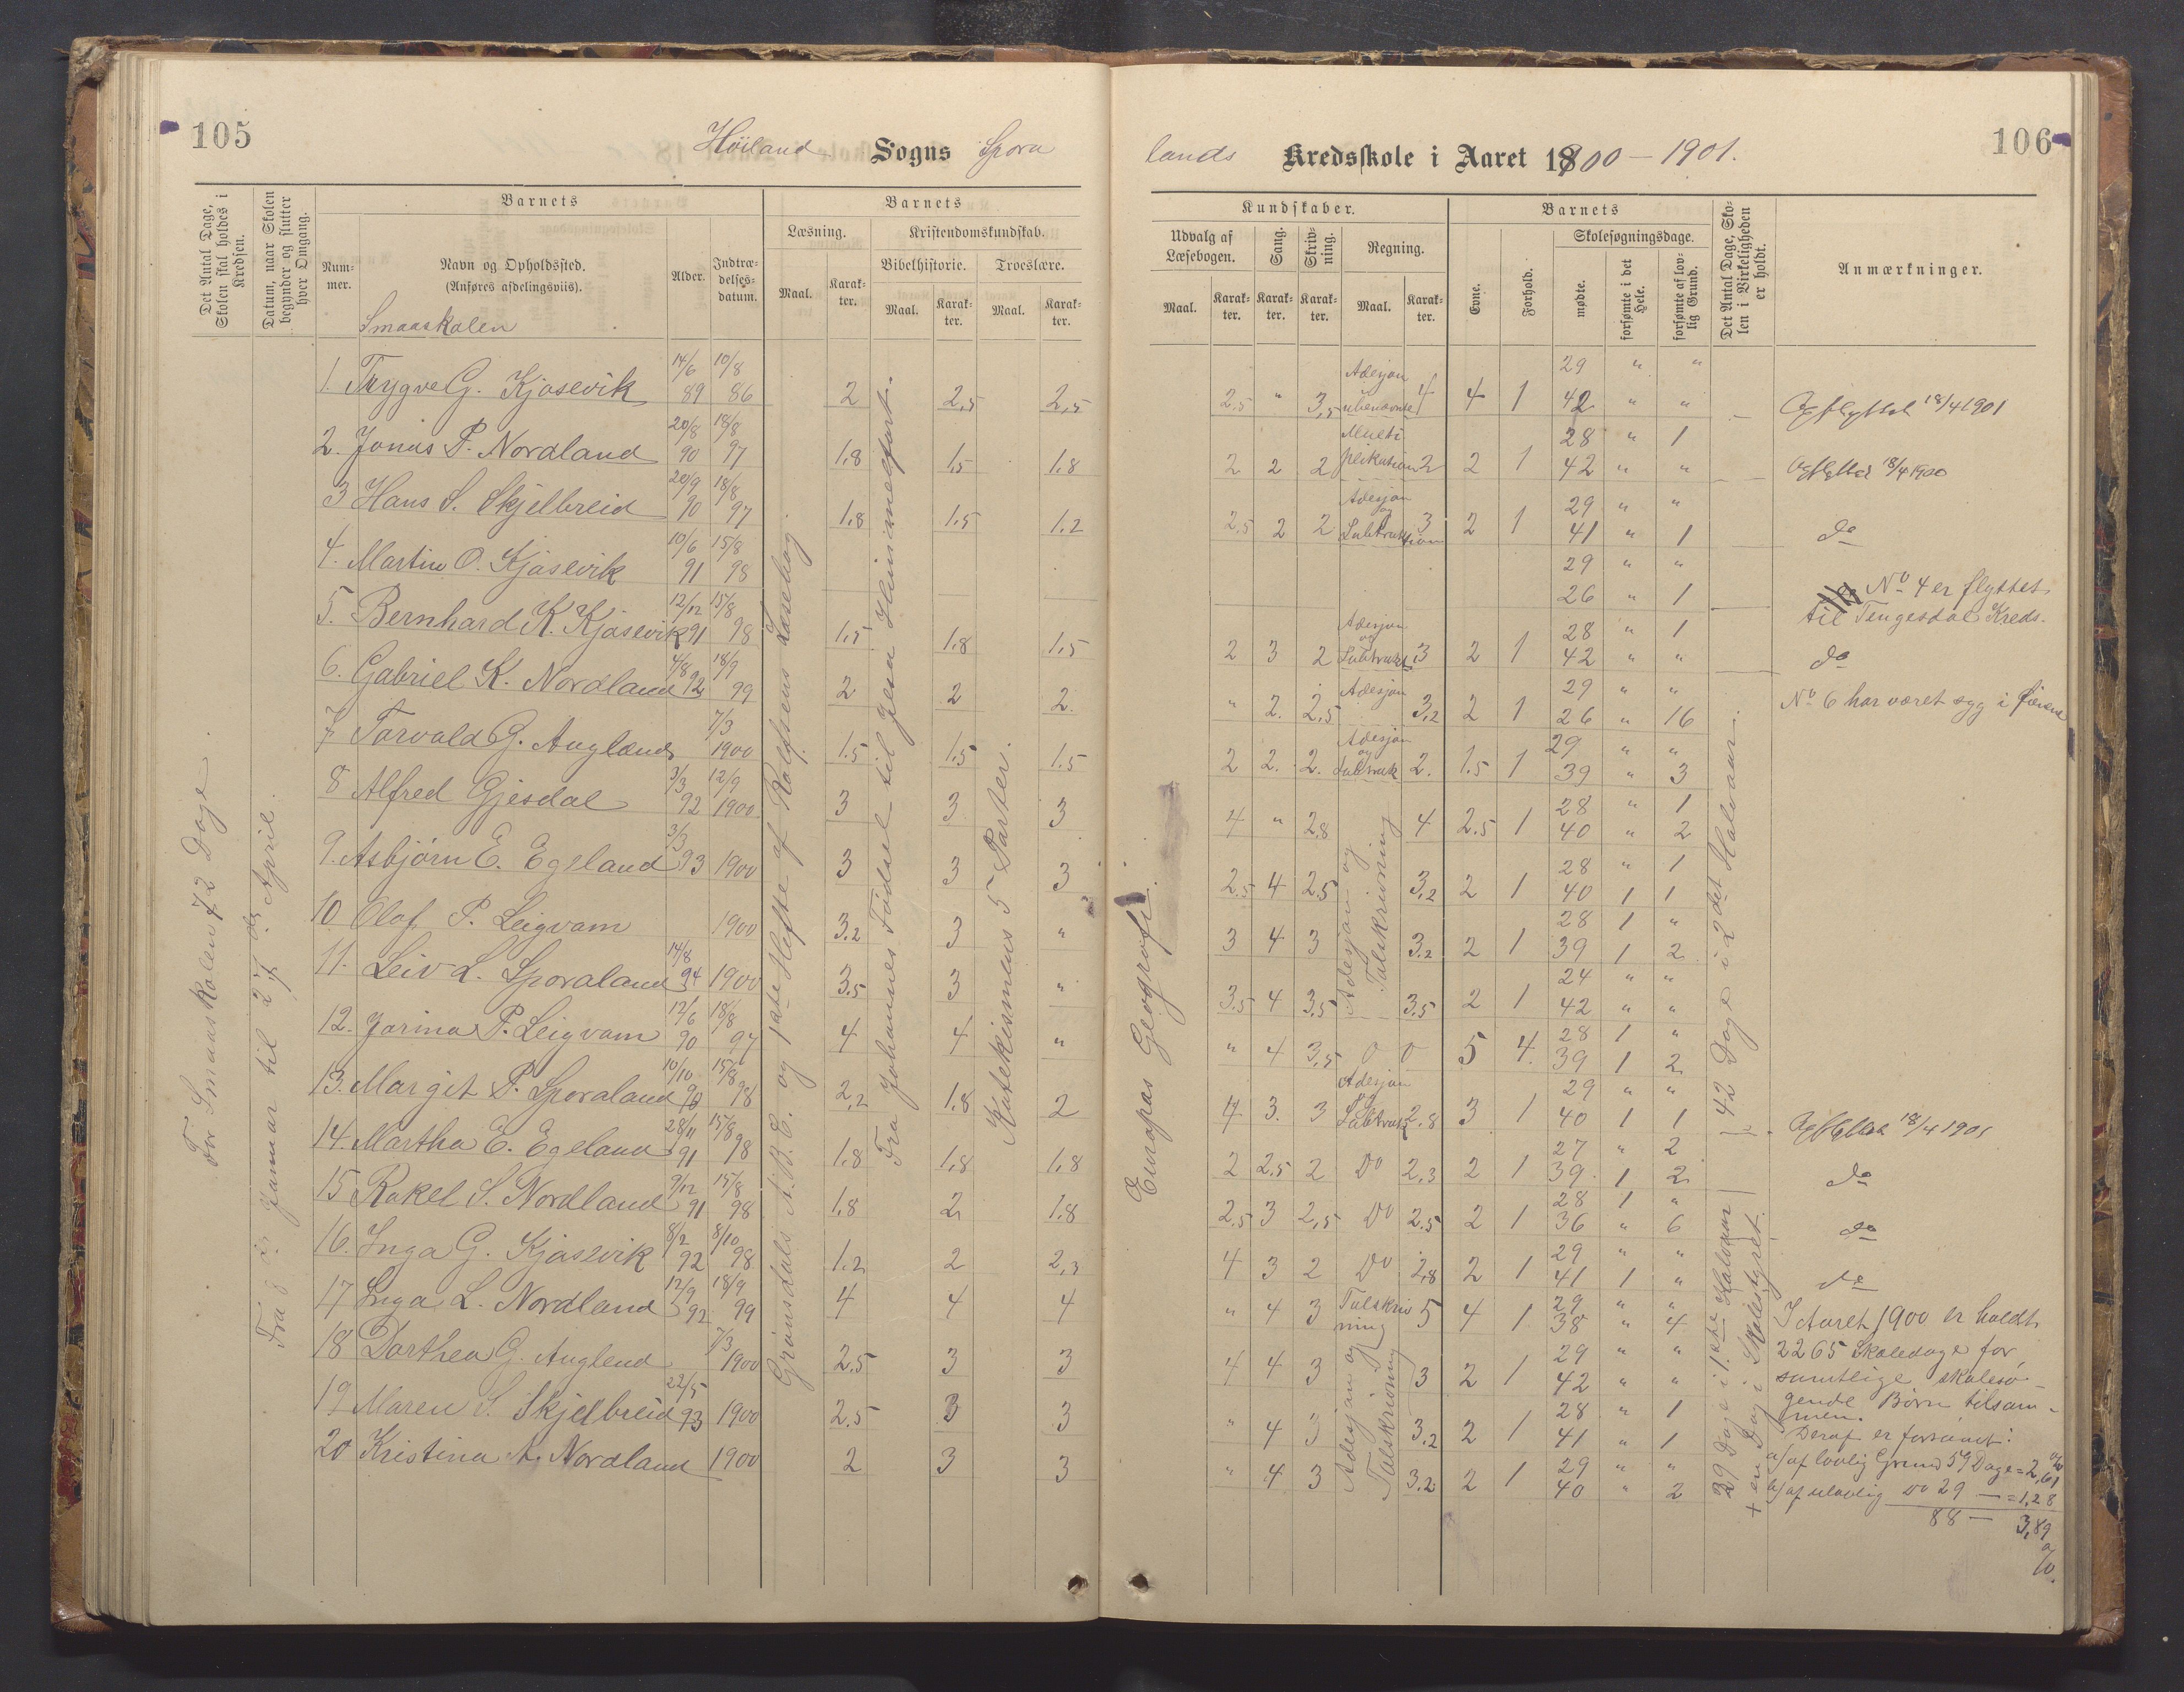 105
Höiland Sogns Spora
Det Antal Dage, Skolen skal holdes i Kredsen.
Datum, naar Skolen begynder og slutter hver Omgang.
Barnets
Nummer.
Navn og Opholdssted.
(Anføres afdelingsviis).
Alder.
Indtrædelsesdatum.
Barnets
Læsning.
Kristendomskundskab.
Bibelhistorie. Troeslære.
Maal. Karakter. Maal. Karakter. Maal. Karakter.
Smaaskolen
For Smaaskolen 72 Dage.
Januar til 27de April.
Grønsdals A.B.C. og 1ste Hefte af Rolfsens Læsebog
Fra Johannes Fødsel til Jesu Himmelfart.
Katekismens 5 Parter.
1. Trygve G. Kjosevik 14/6 89 10/8 86 2 2,5 2,5
2. Jonas P. Nordland 20/8 90 18/8 97 1,8 1,5 1,8
3 Hans S. Skjelbreid 20/9 90 18/8 97 1,8 1,5 1.2
4. Martin O. Kjosevik 10/6 91 15/8 98
5. Bernhard K. Kjosevik 12/12 91 15/8 98 1,5 1,8 1,5
6. Gabriel K. Nordland 4/8 92 18/9 99 2 2 2.
7 Torvald G. Augland 7/3 1900 1.5 1,5 1.5
8 Alfred Gjesdal 3/3 92 12/9 1900 3 3 3
9. Asbjörn E. Egeland 3/3 93 1900 3 3 3
10 Olaf P. Leigvam 1900 3.2 3 "
11. Leiv L. Sporaland 14/8 94 1900 3.5 3 "
12. Jorina P. Leigvam 12/6 90 18/8 97 4 4 "
13. Margit P. Sporaland 10/10 90 15/8 98 2,2 1.8 2
14. Martha E. Egeland 28/11 91 15/8 98 1,8 1,8 1,8
15 Rakel S. Nordland 9/12 91 15/8 98 1.8 2 1.8
16. Inga G. Kjosevik 8/2 92 8/10 98 1.2 2 2,3
17 Inga L. Nordland 12/9 92 18/9 99 4 4 4
18 Dorthea G. Auglend 7/3 1900 2.5 3 3
19 Maren S. Skjelbreid 22/5 93 1900 2.5 3 3
20 Kristina A. Nordland 1900 2 3 3
106
lands Kredsskole i Aaret 1900 - 1901.
Kundskaber.
Udvalg af Læsebogen.
Sang.
Skrivning.
Regning.
Maal. Karakter. Karakter. Karakter. Maal. Karakter.
Barnets
Evne.
Forhold.
Skolesøgningsdage.
mødte.
forsømte i det Hele.
forsømte af lovlig Grund.
Det Antal Dage, Skolen i Virkeligheden er holdt.
Anmærkninger.
Europas Geografi.
2.5 " 3,5 Adesjon ubenævnte 4 4 1 29 " " 42 " " 18/4 1901
2 2 2 Multiplikation 2 2 1 28 " 1 42 " " 18/4 1900
2.5 2 2 Adesjon og Subtraktion 3 2 1 29 " " 41 " 1 do
29 " " 26 " 1 No 4 er flyttet
til Tengesdal Kreds.
2 3 2 Adesjon og Subtrakt. 3 2 1 28 " 1 42 " " do
" 2. 2,5 Adesjon 3,2 2 1 29 " " 26 " 16 No 6 har været syg i
2 2. 2. Adesjon og Subtrak 2. 1.5 1 29 " " 39 " 3
4 " 2.8 4 2.5 1 28 " 1 40 " 2
2.5 4 2.5 3,2 2 1 28 " 1 40 1 1
3 4 3 3.2 2 1 28 1 " 39 1 2
3.5 4 3.5 3.5 2 1 24 " " 42 " "
Adesjon og Talskrivning
" 4 3,5 0 0 5 4. 28 1 " 39 1 2
4 3. 3 Adesjon og Subtrakt 2.8 3 1 29 " " 40 1 1 18/4 1901
2 2.5 2 Do 2,3 2 1 27 " 2 39 1 2 do
2.5 3 2,5 Do 2.5 2 1 28 1 " 36 " 6 do
4 3 2 Do 2,8 2 1 29 " " 41 1 " do
" 4 3 Talskrivning 5 4 1 29 " " 38 " 4
4 4 3 3 2 1 29 " " 42 " "
" 4 3 3,2 2 1 28 " 1 41 " 1
" 4 3 3.2 2 1 29 " " 40 " 2
Adesjon og Talskrivning
42 Dage i 2det Halvaar.
29 Dage i 1ste Halvaar
+ en Dag i Skolestyret.
I Aaret 1900 er holdt
2265 Skoledage for
samtlige skolesø-
gende Børn tilsam-
men.
Deraf er forsømt:
a/ af lovlig Grund 59 Dage = 2,61 %
b/ af ulovlig Do 29 — = 1,28
88 — 3,89
%.